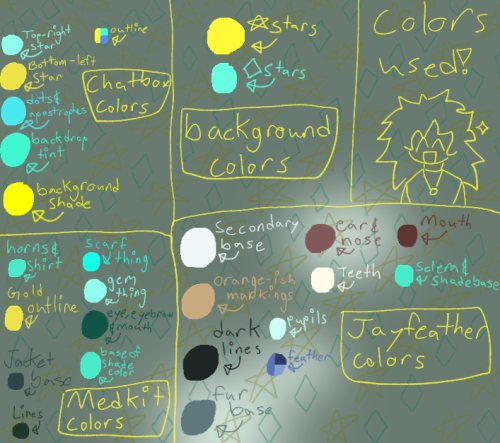 Top-right
star
outline
Bottom-left
Star
Chatbox
Colors
dots &
apostropes
backdrop
tint
background
Shade
stars
stars
background
colors
Colors
used!
horns &
shirt
Gold
outline
Jacket
base
Lines
scarf
thing
gem
thing
eye, eyebrow
& mouth
base of
shade
color
Medkit
colors
Secondary
base
orange-ish
markings
dark
lines
fur
base
ear &
nose
Mouth
Teeth
Sclera &
Shadebase
pupils
feather
Jayfeather
colors